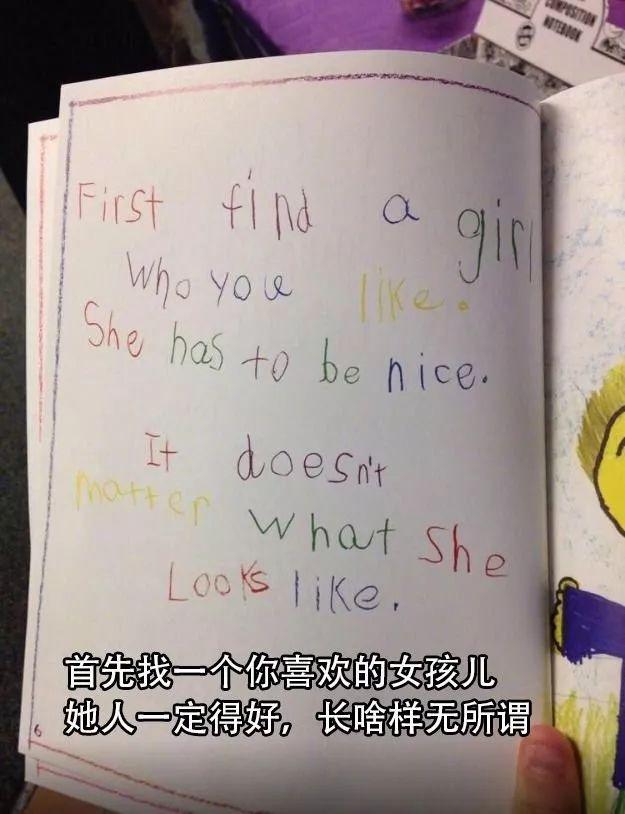 COMPOSITION
NOTEBOOK
First find a girl
Who you like.
She has to be nice.
It doesn't
matter what she
Looks like.
首先找一个你喜欢的女孩儿
她人一定得好，长啥样无所谓
6